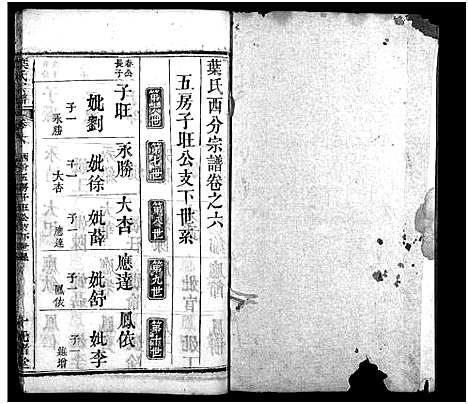 葉氏西分宗譜卷之六
五房子旺公支下世系
第六世
第七世
第八世
第九世
第十世
春公長子
子旺
永勝
大杏
應達
鳳依
妣劉
妣徐
妣薛
妣舒
妣李
子一
永勝
子一
大杏
子一
應達
子一
鳳依
子一
葉氏宗譜
西分五房子旺公支下世系